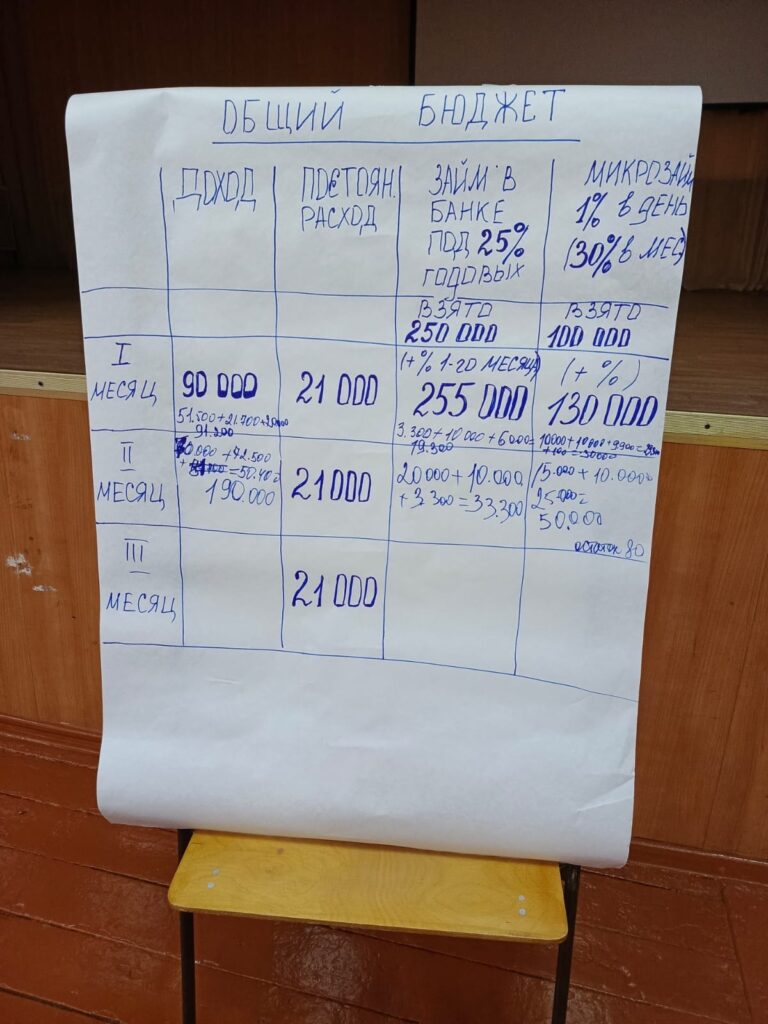 ОБЩИЙ БЮДЖЕТ
ДОХОД
ПОСТОЯН.
РАСХОД
ЗАЙМ В
БАНКЕ
ПОД 25%
ГОДОВЫХ
МИКРОЗАЙМ
1% В ДЕНЬ
(30% в МЕС)
ВЗЯТО
250 000
ВЗЯТО
100 000
I
МЕСЯЦ
90 000
51.500+21.700+
91.200
21 000
(+ % 1-го МЕСЯЦА)
255 000
3.300+10000+6000=
19.300
(+ %)
130 000
10000+10000+9900=
+100 =30000
II
МЕСЯЦ
+42.500
=50.400
190.000
21000
20000+10.000
+3.300=33.300
15.000+10.000+
25.000=
50.000
остаток 80
III
МЕСЯЦ
21 000